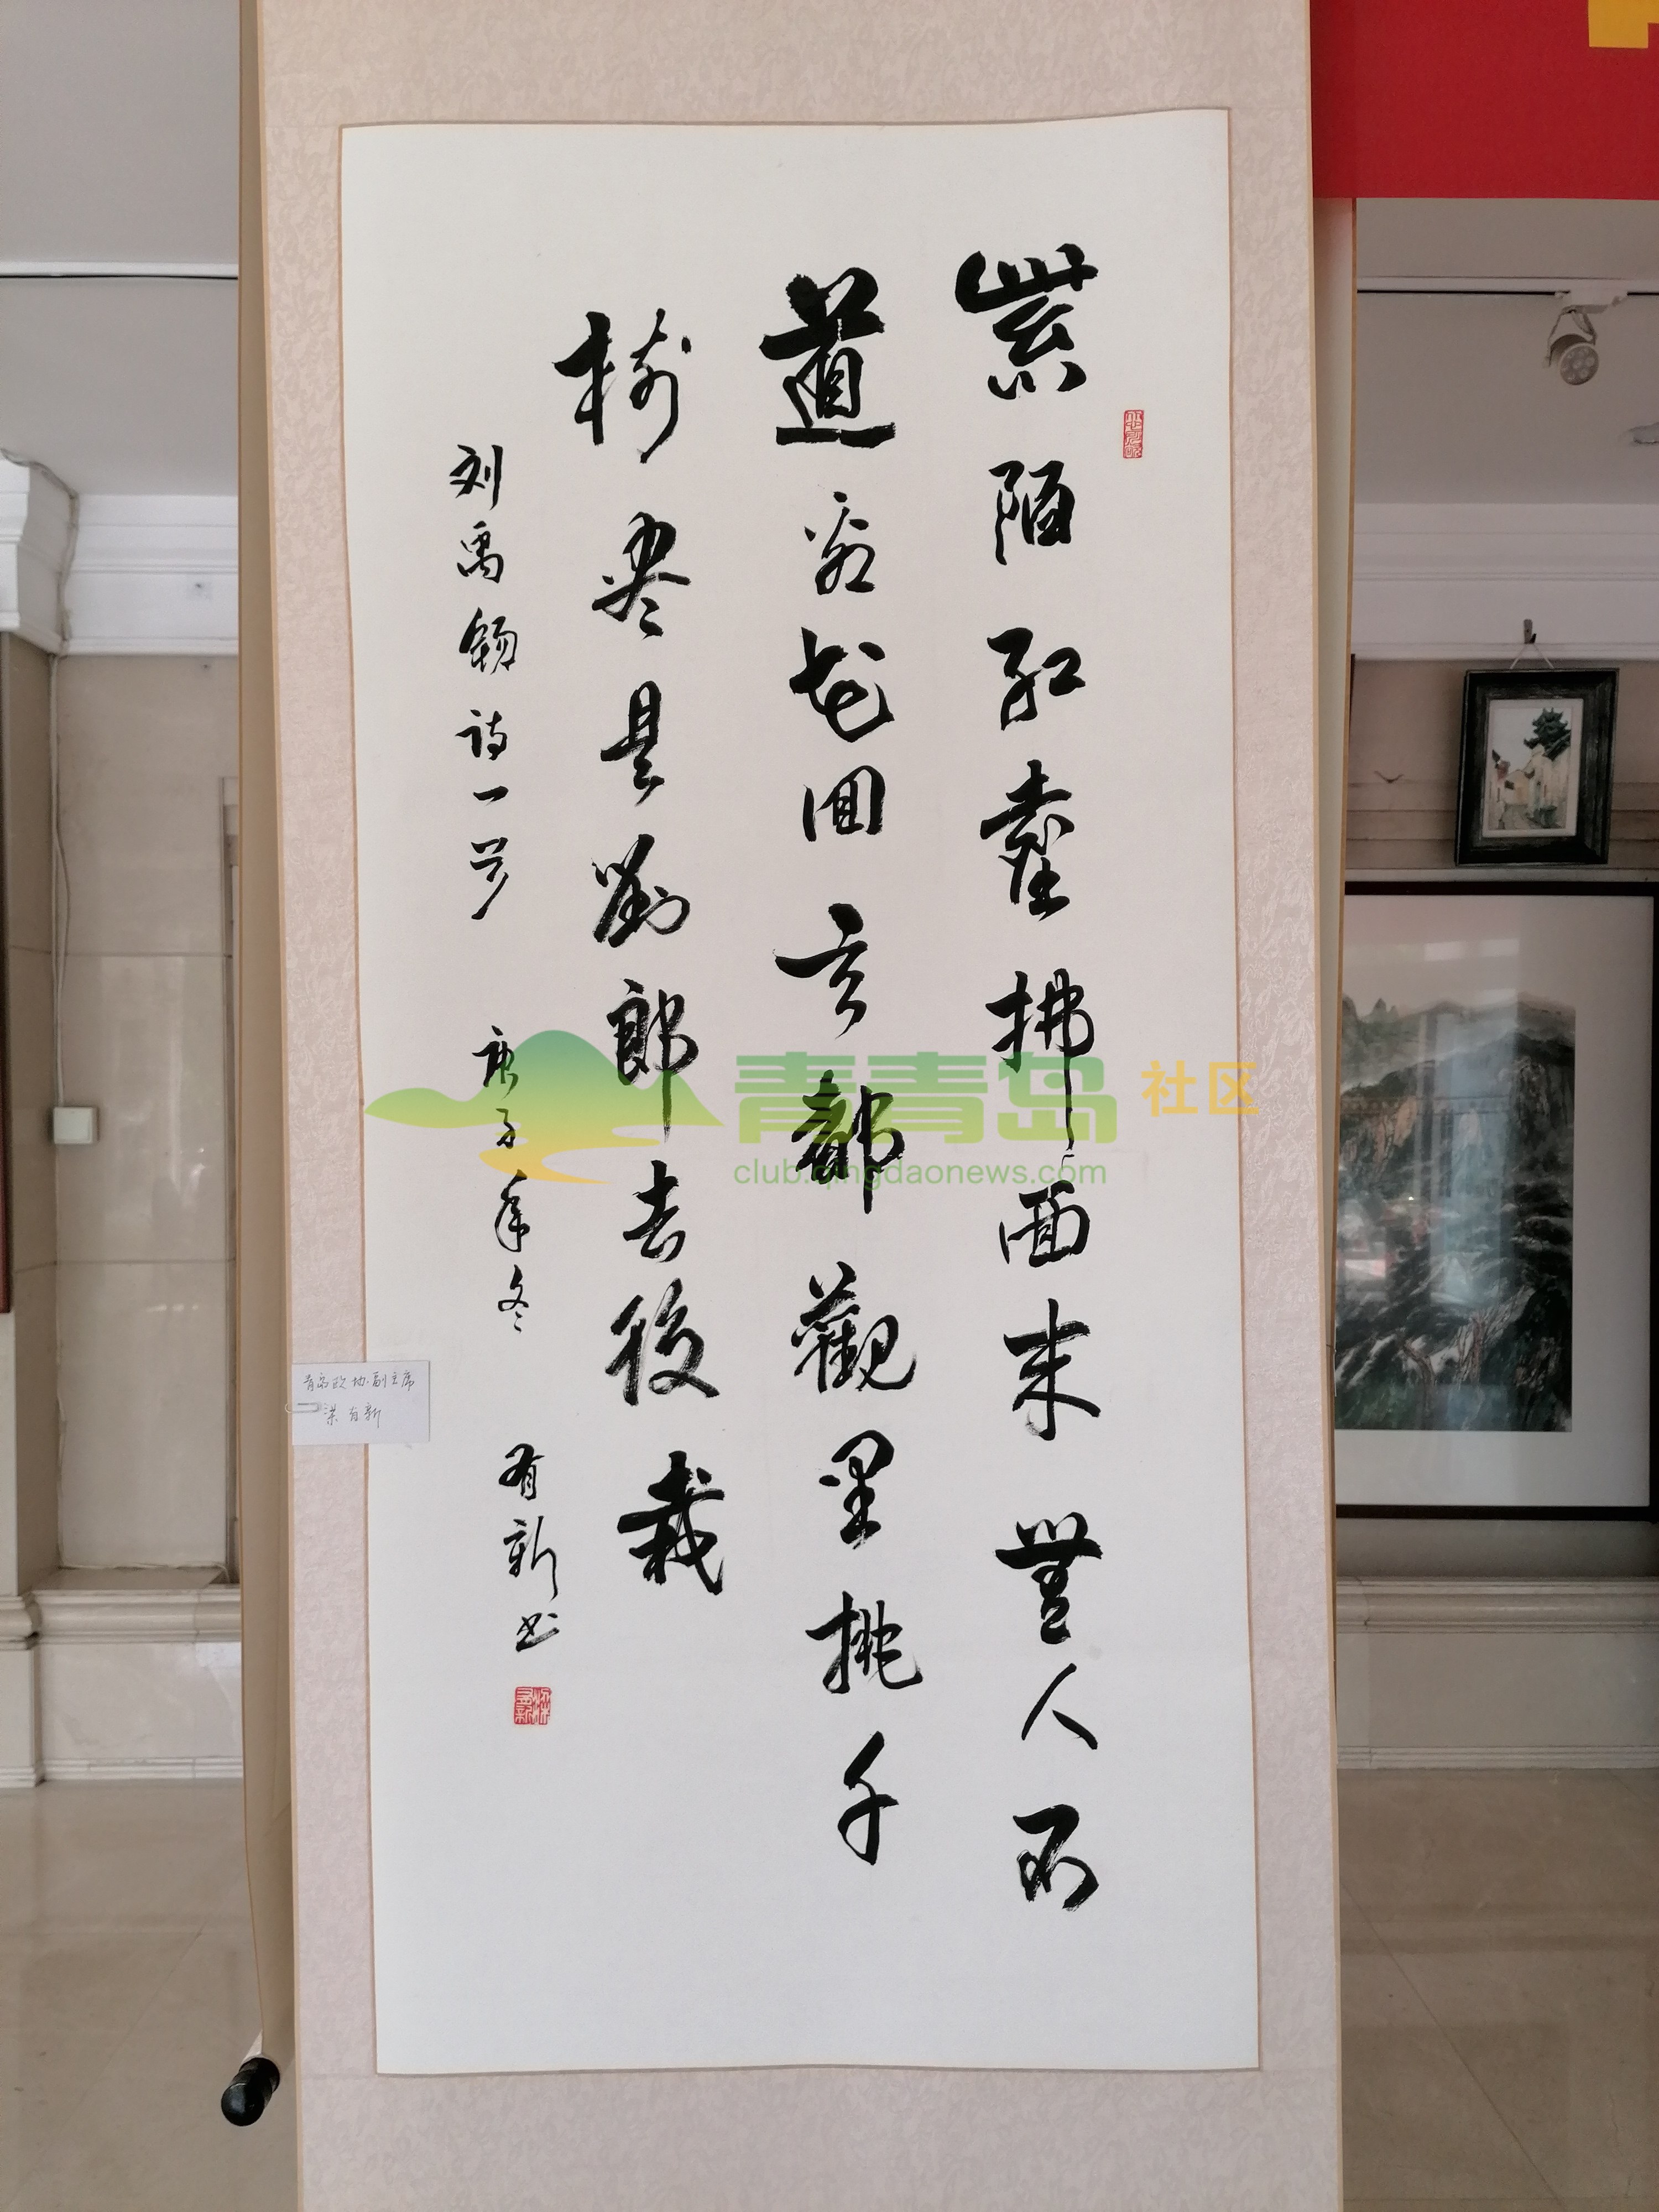 紫陌红尘拂面来無人不
道看花回玄都觀里桃千
樹尽是劉郎去後栽
刘禹锡诗一首 庚子年冬 有新书
青岛政协副主席
梁有新
青青岛社区
club.qingdaonews.com